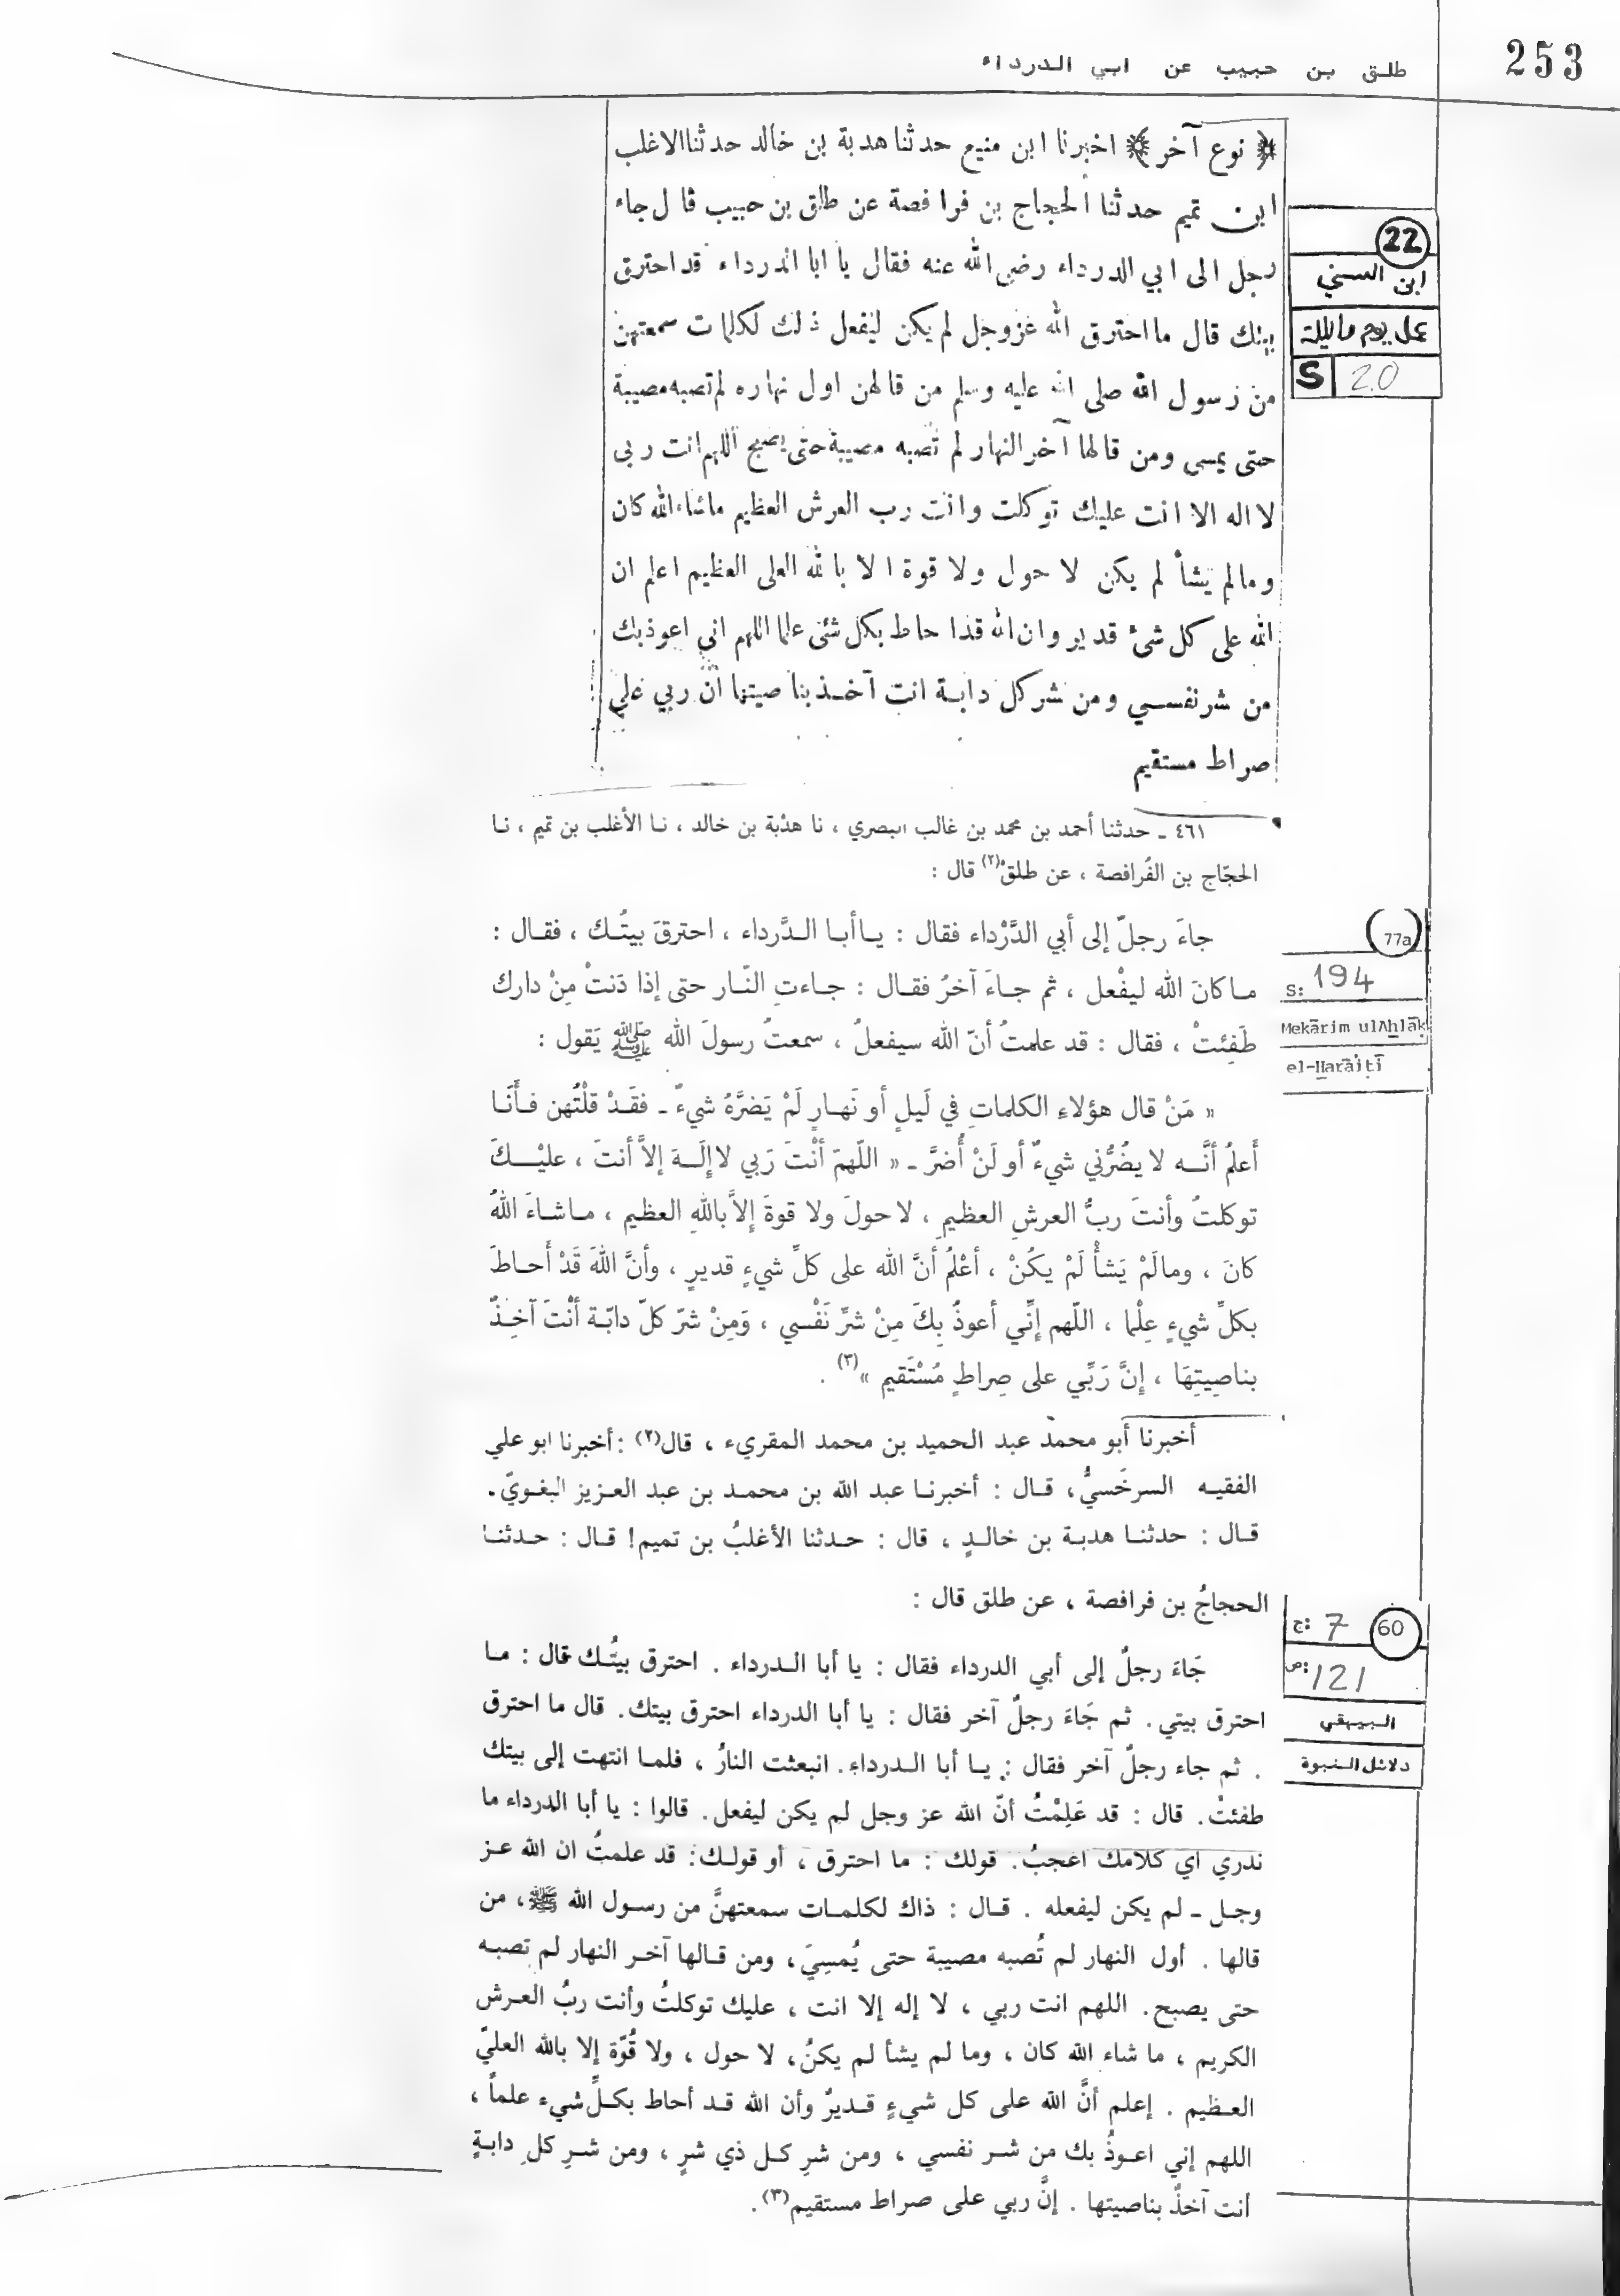 253
طلـق بـن حبيب عن ابي الدرداء
﴿ نوع آخر ﴾ اخبرنا ابن منيع حدثنا هدبة بن خالد حدثنا الاغلب
ابن تميم حدثنا الحجاج بن فرافصة عن طلق بن حبيب قال جاء
رجل الى ابي الدرداء رضى الله عنه فقال يا ابا الدرداء قد احترق
بيتك قال ما احترق الله عز وجل لم يكن ليفعل ذلك لكلمات سمعتهن
من رسول الله صلى الله عليه وسلم من قالهن اول نهاره لم تصبه مصيبة
حتى يمسى ومن قالها آخر النهار لم تصبه مصيبة حتى يصبح اللهم انت ربى
لا اله الا انت عليك توكلت وانت رب العرش العظيم ماشاء الله كان
ومالم يشأ لم يكن لا حول ولا قوة الا بالله العلى العظيم اعلم ان
الله على كل شىء قدير وان الله قد احاط بكل شئى علما اللهم انى اعوذ بك
من شر نفسـي ومن شر كل دابـة انت آخـذ بنا صيتها ان ربي على
صراط مستقيم
22
ابن السني
عمل يوم وليلة
S 20
٤٦١ ـ حدثنا أحمد بن محمد بن غالب البصري ، نا هدْبة بن خالد ، نـا الأغلب بن تميم ، نـا
الحجّاج بن الفُرافصة ، عن طلقْ(٢) قال :
جاءَ رجلّ إلى أبي الدَّرْداء فقال : يـا أبـا الـدَّرداء ، احترقَ بيتُـك ، فقـال :
مـا كانَ الله ليفْعل ، ثم جـاءَ آخرُ فقـال : جـاءتِ النّـار حتى إذا دَنتْ مِنْ دارك
طَفِئتْ ، فقال : قد علمتُ أنّ الله سيفعلُ ، سمعتُ رسولَ الله ﷺ يَقول :
« مَنْ قال هؤلاءِ الكلماتِ في لَيلٍ أو نَهـارٍ لَمْ يَضرَّهُ شيءٌ ـ فقَـدْ قلْتُهن فـأَنَـا
أَعلمُ أنَّـه لا يضُرُّني شيءٌ أو لَنْ أُضرَّ ـ « اللّهمّ أنْتَ رَبي لا إلَـهَ إلاَّ أنتَ ، عليْـكَ
توكلتُ وأنتَ ربُّ العرشِ العظيمِ ، لا حولَ ولا قوةَ إلاَّ باللهِ العظيم ، مـا شـاءَ اللهُ
كانَ ، ومالَمْ يَشأْ لَمْ يكُنْ ، أعْلمُ أنَّ الله على كلِّ شيءٍ قديرٍ ، وأنَّ اللهَ قَدْ أَحـاطَ
بكلِّ شيءٍ عِلْما ، اللّهم إنّي أعوذُ بِكَ مِنْ شرِّ نَفْسي ، وَمِنْ شرّ كلّ دابّـة أنْتَ آخِـذٌ
بناصِيتِهَا ، إنَّ رَبِّي على صِراطٍ مُسْتَقيم »(٣) .
(77a)
S: 194
Mekārim ulAḫlāḳ
el-Ḫarāiṭī
أخبرنا أبو محمد عبد الحميد بن محمد المقريء ، قال(٢) : أخبرنا ابو علي
الفقيـه السرخَسيُّ، قـال : أخبرنـا عبد الله بن محمـد بن عبد العـزيز البغـويّ.
قـال : حدثنـا هدبـة بن خالـدٍ ، قال : حـدثنا الأغلبُ بن تميم! قـال : حـدثنـا
الحجاجُ بن فرافصة ، عن طلق قال :
جَاءَ رجلٌ إلى أبي الدرداء فقال : يا أبا الـدرداء . احترق بيتُـك قال : مـا
احترق بيتي. ثم جَاءَ رجلٌ آخر فقال : يا أبا الدرداء احترق بيتك. قال ما احترق
. ثم جاء رجلٌ آخر فقال : يـا أبا الـدرداء. انبعثت النارُ ، فلمـا انتهت إلى بيتك
طفئتْ. قال : قد عَلِمْتُ أنّ الله عز وجل لم يكن ليفعل. قالوا : يا أبا الدرداء ما
ندري أي كلامك أعجبُ. قولك : ما احترق ، أو قولـك: قد علمتُ ان الله عـز
وجـل ـ لم يكن ليفعله . قـال : ذاك لكلمـات سمعتهنَّ من رسـول الله ﷺ، من
قالها . أول النهار لم تُصبه مصيبة حتى يُمسِيَ، ومن قـالها آخـر النهار لم تصبـه
حتى يصبح. اللهم انت ربي ، لا إله إلا انت ، عليك توكلتُ وأنت ربُ العـرش
الكريم ، ما شاء الله كان ، وما لم يشأ لم يكنُ، لا حول ، ولا قُوّة إلا بالله العليّ
العـظيم . إعلم أنَّ الله على كل شيءٍ قـديرٌ وأن الله قـد أحاط بكـلِّ شيء علماً ،
اللهم إني اعـوذُ بك من شـر نفسي ، ومن شرِ كـل ذي شرٍ ، ومن شـرِ كل دابـةٍ
أنت آخذٌ بناصيتها . إنَّ ربي على صراط مستقيم(٣).
60
ج: 7
ص: 121
البيهقي
دلائل النبوة